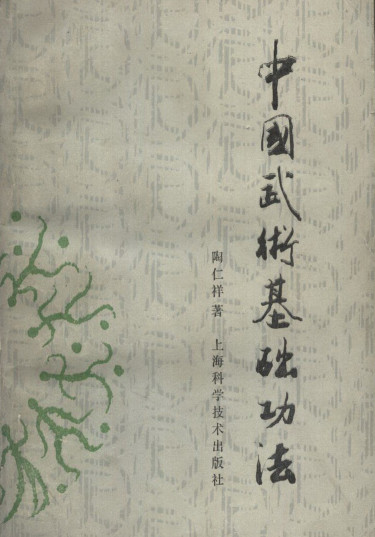 中國武術基础功法
陶仁祥著 上海科学技术出版社